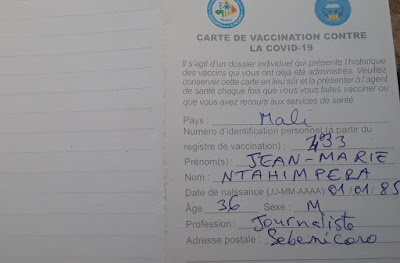 CARTE DE VACCINATION CONTRE
LA COVID-19
Il s'agit d'un dossier individuel qui présente l'historique
des vaccins qui vous ont déjà été administrés. Veuillez
conserver cette carte en lieu sûr et la présenter à l'agent
de santé chaque fois que vous vous faites vacciner ou
que vous avez recours aux services de santé.
Pays : Mali
Numéro d'identification personnel (à partir du
registre de vaccination) : 433
Prénom(s) : JEAN-MARIE
Nom : NTAHIMPERA
Date de naissance (JJ-MM-AAAA) 01/01/85
Âge 36 Sexe : M
Profession : Journaliste
Adresse postale : Sebenicoro